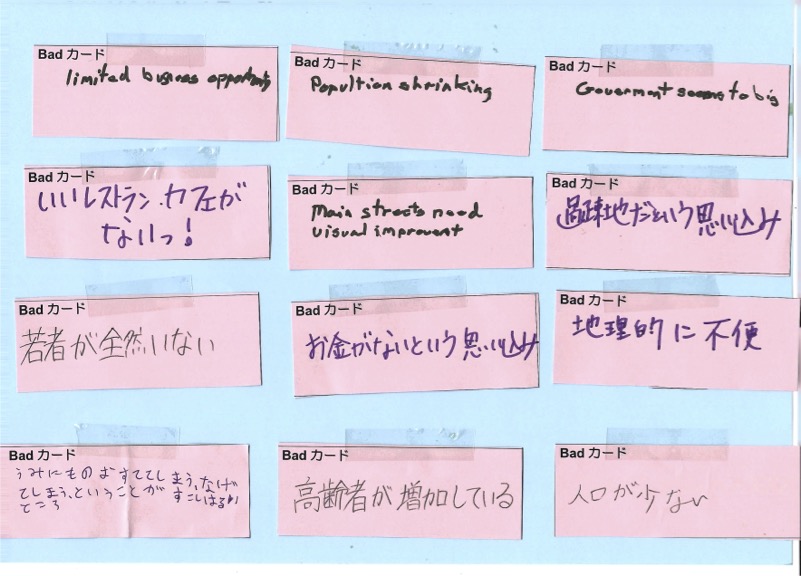 Bad カード
limited business opportunity
Bad カード
Popultion shrinking
Bad カード
Goverment seems to big
Bad カード
いいレストラン、カフェが
ないっ!
Bad カード
Main streets need
visual improvent
Bad カード
過疎地だという思い込み
Bad カード
若者が全然いない
Bad カード
お金がないという思い込み
Bad カード
地理的に不便
Bad カード
うみにものおすててしまう、なげ
てしまう、ということが すこしはるい
ところ
Bad カード
高齢者が増加している
Bad カード
人口が少ない